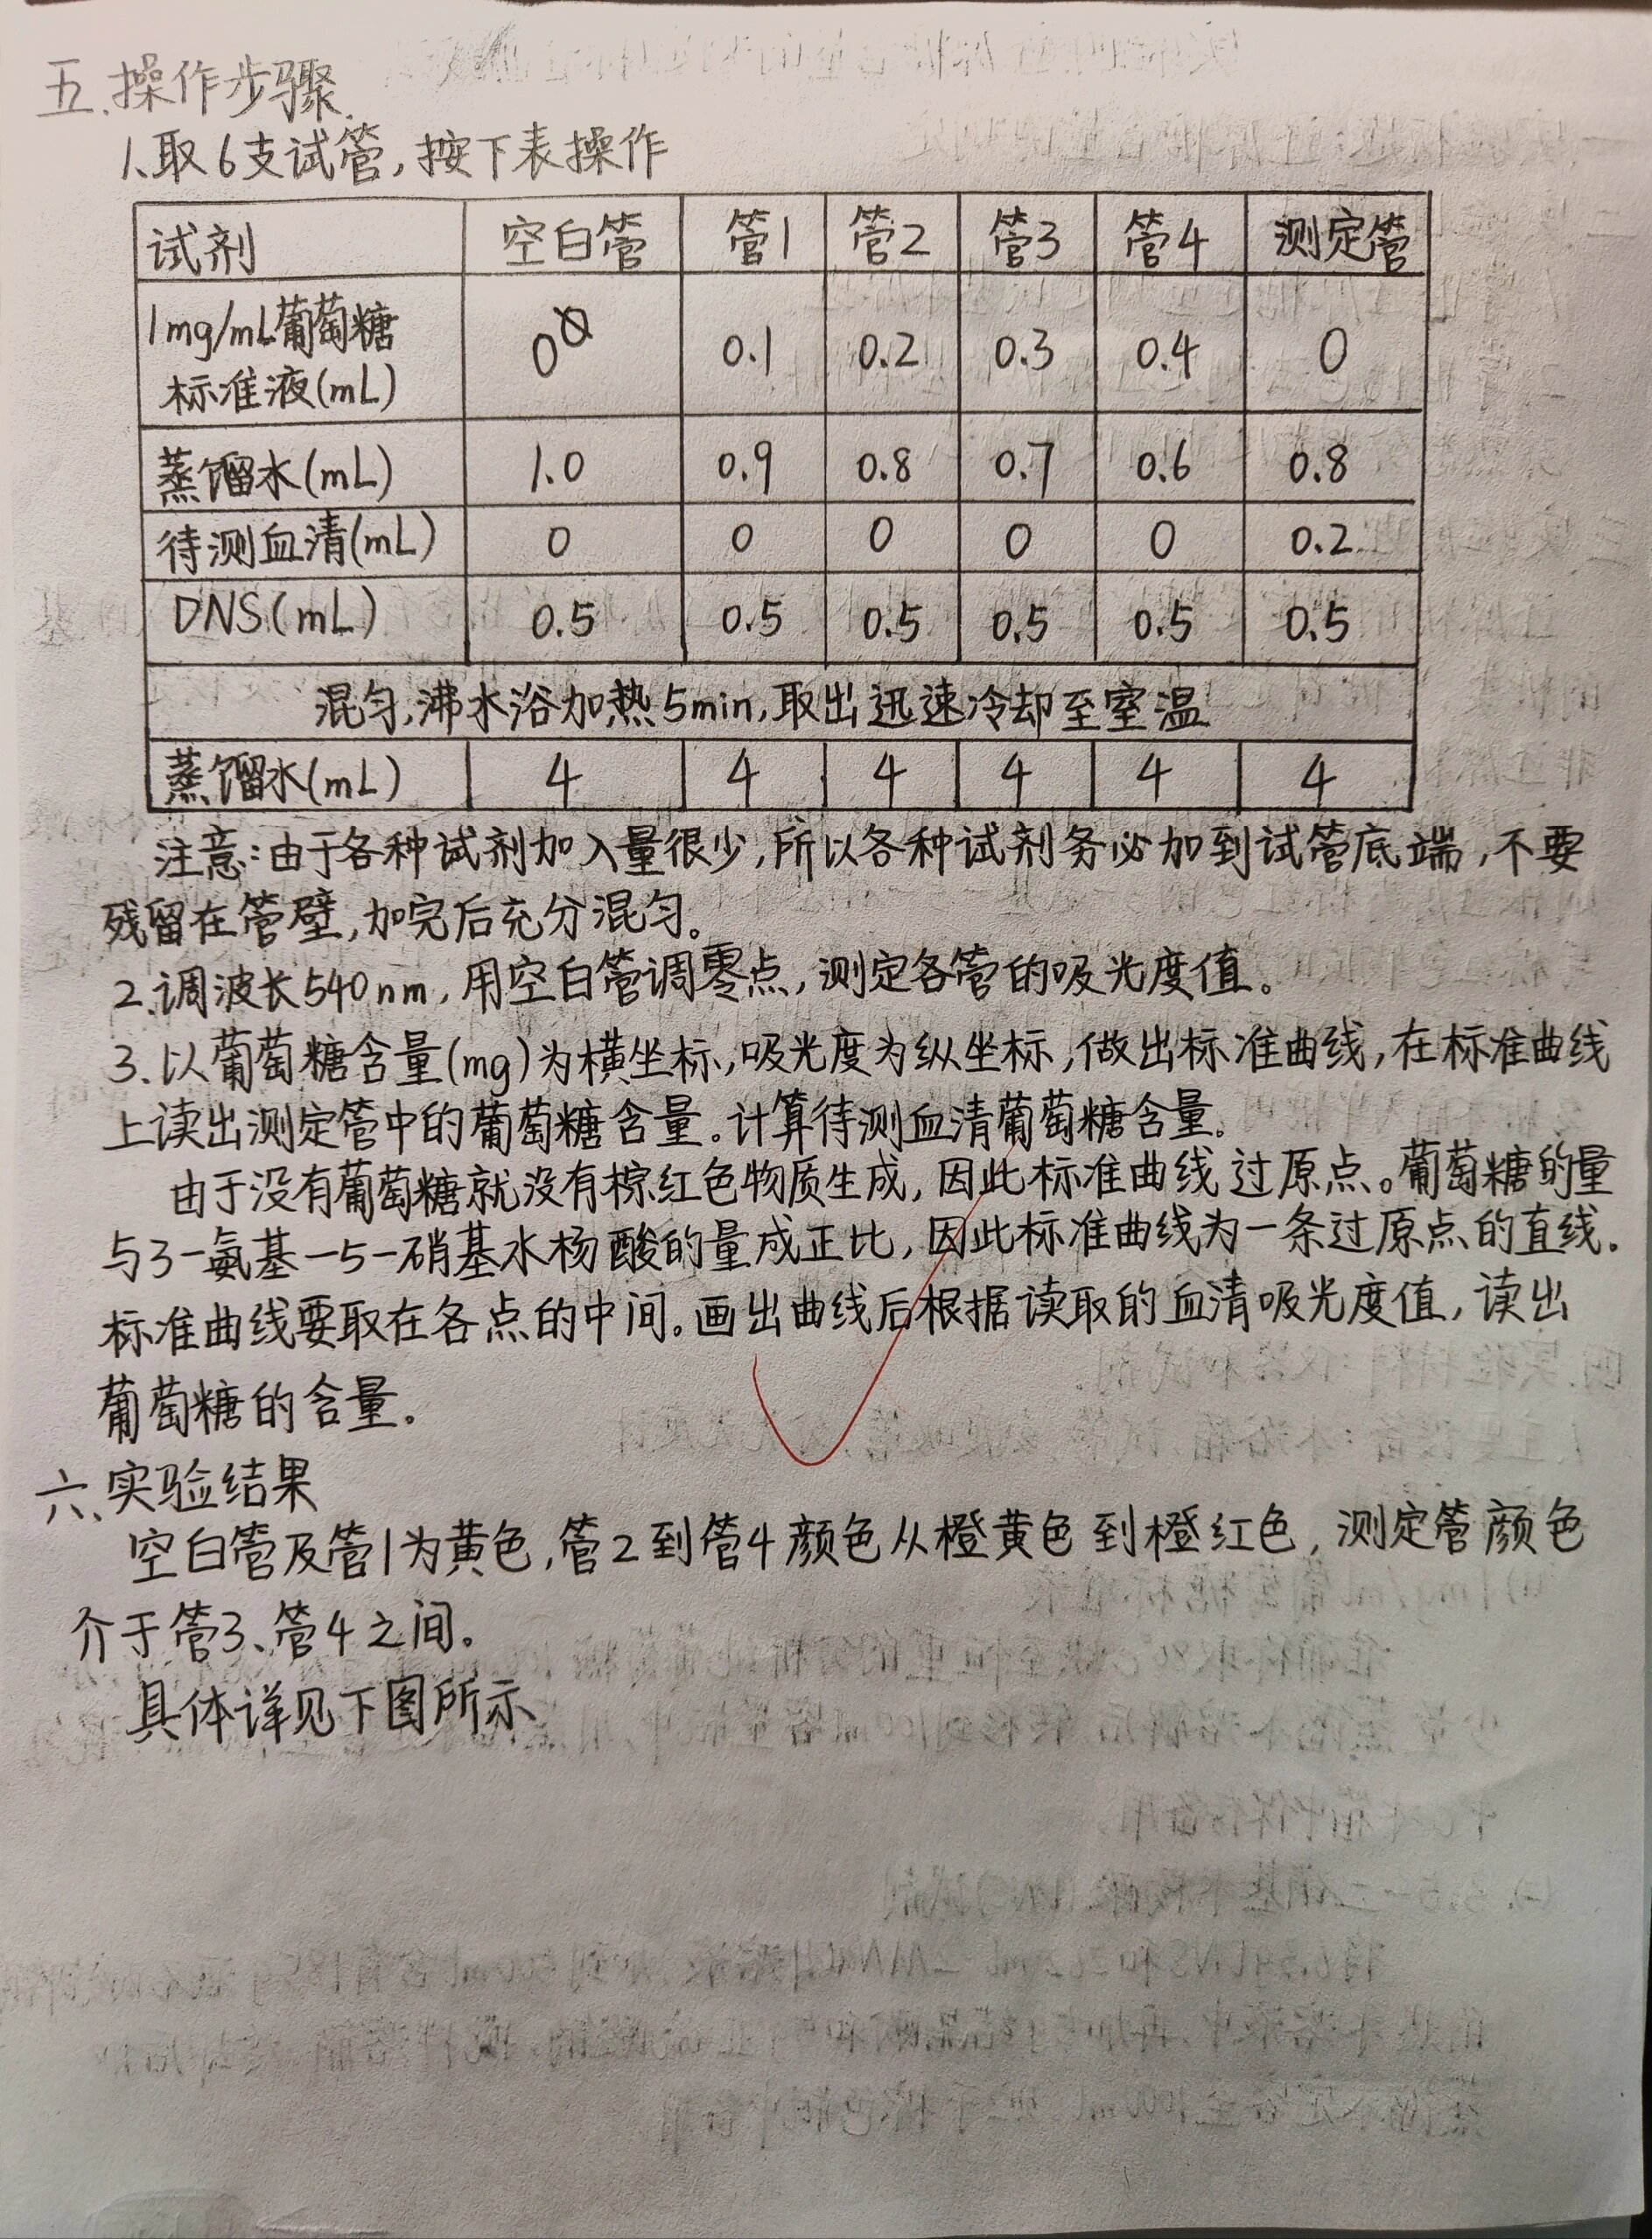 五.操作步骤.
1.取6支试管,按下表操作
试剂 空白管 管1 管2 管3 管4 测定管
1mg/mL葡萄糖
标准液(mL) 0 0.1 0.2 0.3 0.4 0
蒸馏水(mL) 1.0 0.9 0.8 0.7 0.6 0.8
待测血清(mL) 0 0 0 0 0 0.2
DNS(mL) 0.5 0.5 0.5 0.5 0.5 0.5
混匀,沸水浴加热5min,取出迅速冷却至室温
蒸馏水(mL) 4 4 4 4 4 4
注意:由于各种试剂加入量很少,所以各种试剂务必加到试管底端,不要
残留在管壁,加完后充分混匀。
2.调波长540nm,用空白管调零点,测定各管的吸光度值。
3.以葡萄糖含量(mg)为横坐标,吸光度为纵坐标,做出标准曲线,在标准曲线
上读出测定管中的葡萄糖含量。计算待测血清葡萄糖含量。
由于没有葡萄糖就没有棕红色物质生成,因此标准曲线过原点。葡萄糖的量
与3-氨基-5-硝基水杨酸的量成正比,因此标准曲线为一条过原点的直线.
标准曲线要取在各点的中间。画出曲线后根据读取的血清吸光度值,读出
葡萄糖的含量。
六、实验结果
空白管及管1为黄色,管2到管4颜色从橙黄色到橙红色,测定管颜色
介于管3、管4之间。
具体详见下图所示